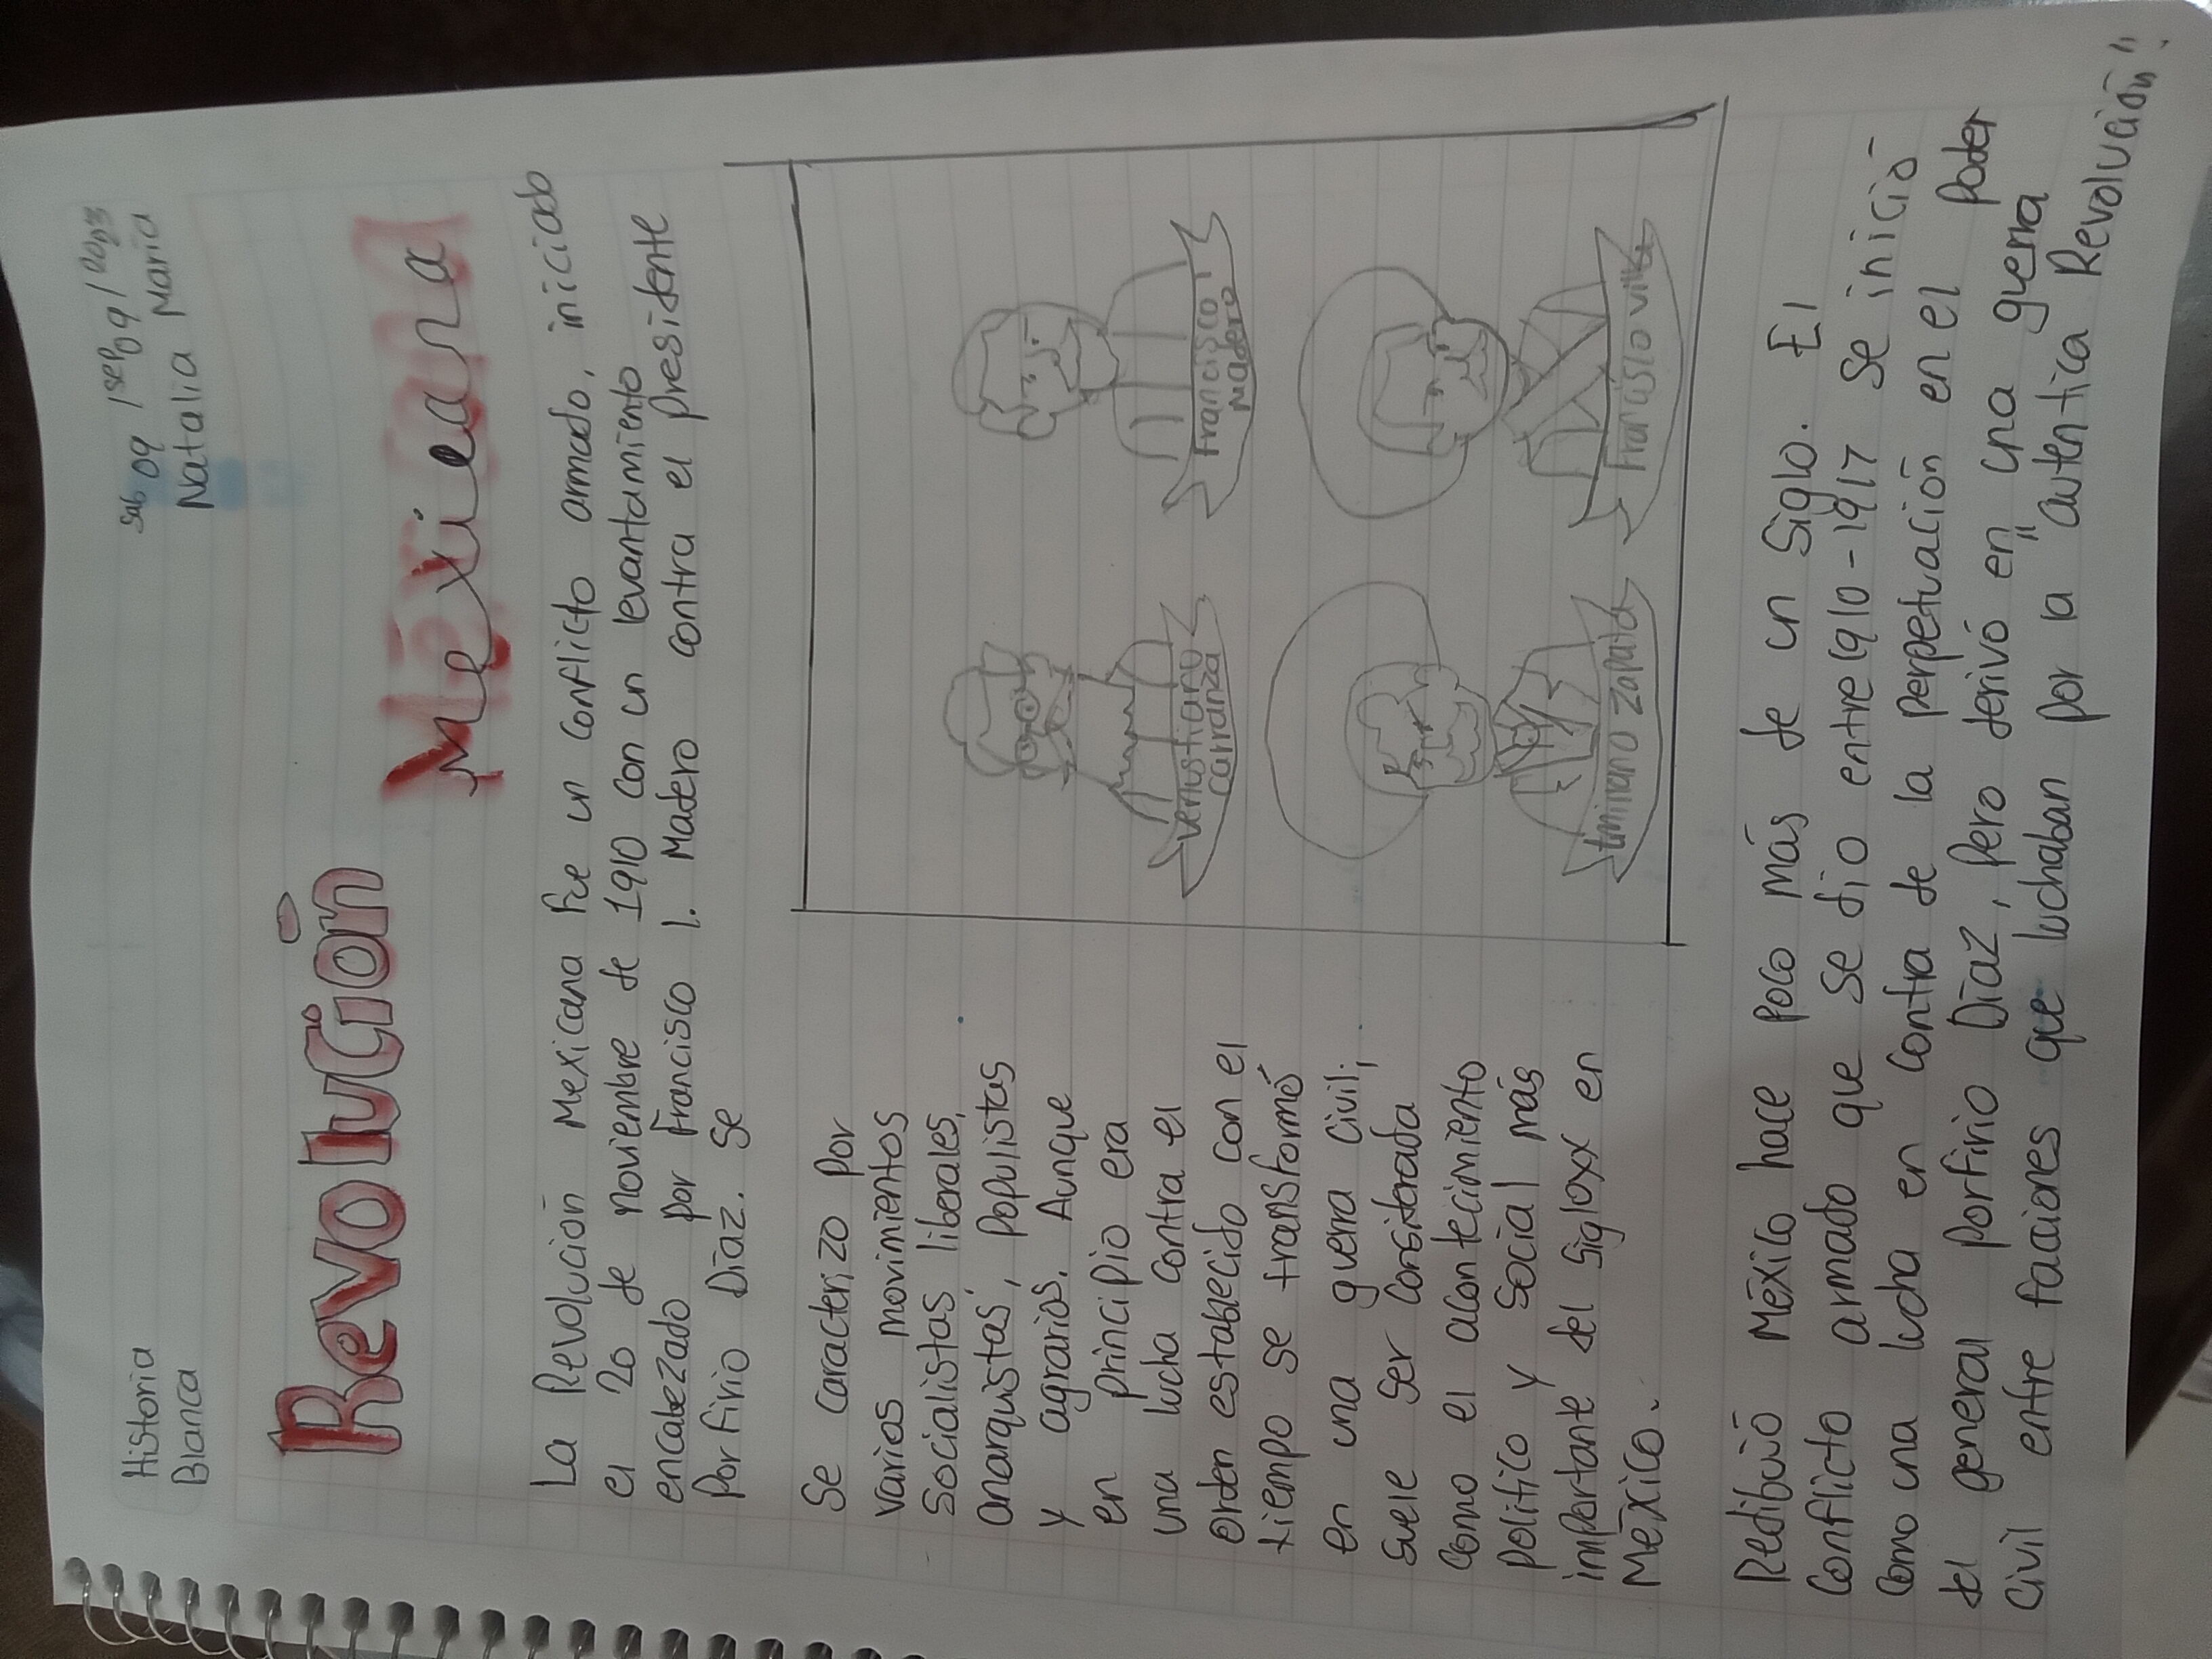 Historia
Blanca
sab 09 / sep 09 /
Natalia María
Revolución
Mexicana
La Revolución Mexicana fue un conflicto armado, iniciado
el 20 de noviembre de 1910 con un levantamiento
encabezado por Francisco I. Madero contra el presidente
Porfirio Díaz. Se
Se caracterizo por
varios movimientos
Socialistas liberales,
anarquistas, populistas
y agrarios. Aunque
en principio era
una lucha contra el
orden establecido con el
tiempo se transformó
en una guerra civil;
suele ser considerada
como el acontecimiento
político y social más
importante del sigloxx en
México.
Venustiano
Carranza
Francisco I
Madero
Emiliano Zapata
Francisco villa
Redibujó México hace poco más de un Siglo. El
conflicto armado que se dio entre 1910-1917 se inició
como una lucha en contra de la perpetuación en el poder
del general Porfirio Díaz, pero derivó en una guerra
civil entre faciones que luchaban por la "autentica Revolución".